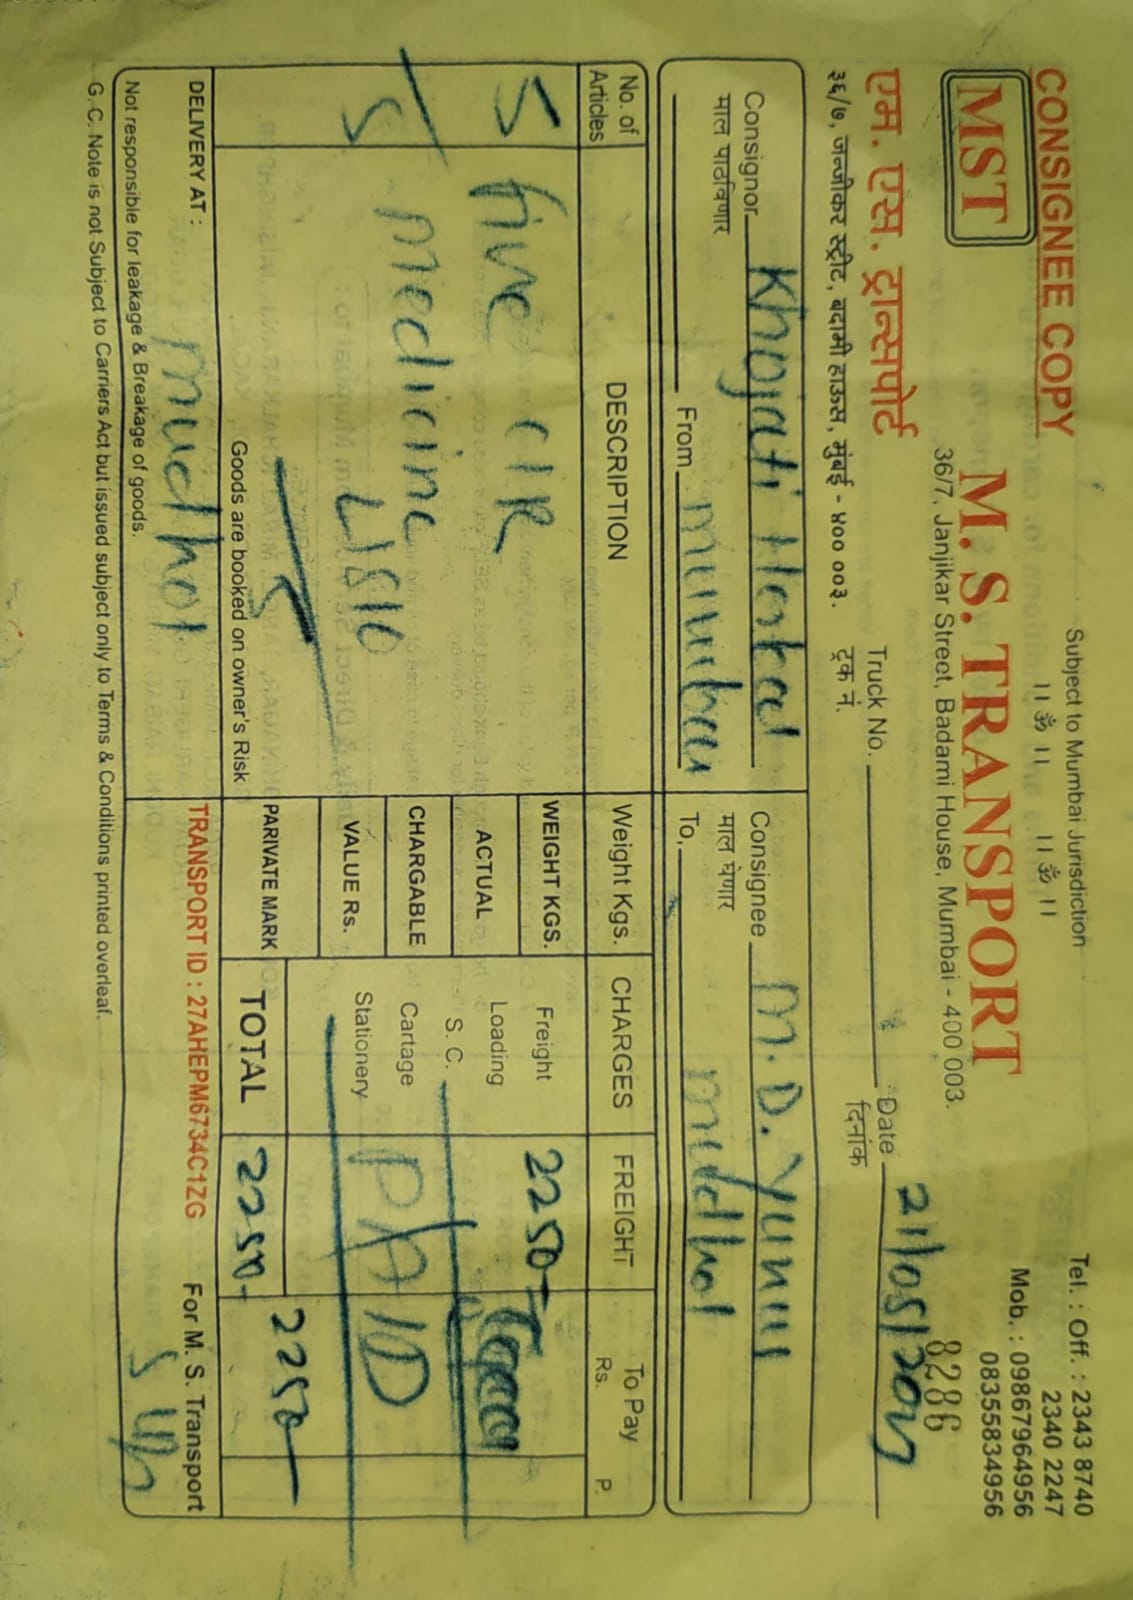 Subject to Mumbai Jurisdiction
Tel. : Off. : 2343 8740
2340 2247
CONSIGNEE COPY
।। ॐ ।। ।। ॐ ।।
Mob. : 09867964956
08355834956
MST
M. S. TRANSPORT
36/7, Janjikar Street, Badami House, Mumbai - 400 003.
8286
एम. एस. ट्रान्सपोर्ट
३६/७, जन्जीकर स्ट्रीट, बदामी हाऊस, मुंबई - ४०० ००३.
Truck No.
ट्रक नं.
Date 21/05/
दिनांक
Consignor
माल पाठविणार
From mumbai
Consignee M. D. Yunus
माल घेणार
To, mudhol
No. of Articles DESCRIPTION Weight Kgs. CHARGES FREIGHT To Pay
Rs. P.
5 five WEIGHT KGS. Freight 2250-
ACTUAL Loading
S. C.
5 medicine CHARGABLE Cartage
VALUE Rs. Stationery PAID
Goods are booked on owner's Risk PARIVATE MARK TOTAL 2250- 2250-
DELIVERY AT : mudhol TRANSPORT ID : 27AHEPM6734C1ZG For M. S. Transport
Not responsible for leakage & Breakage of goods.
G.C. Note is not Subject to Carriers Act but issued subject only to Terms & Conditions printed overleaf.